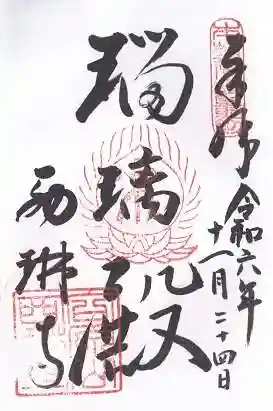 奉拝
令和六年
十一月二十四日
瑠璃殿
西琳寺